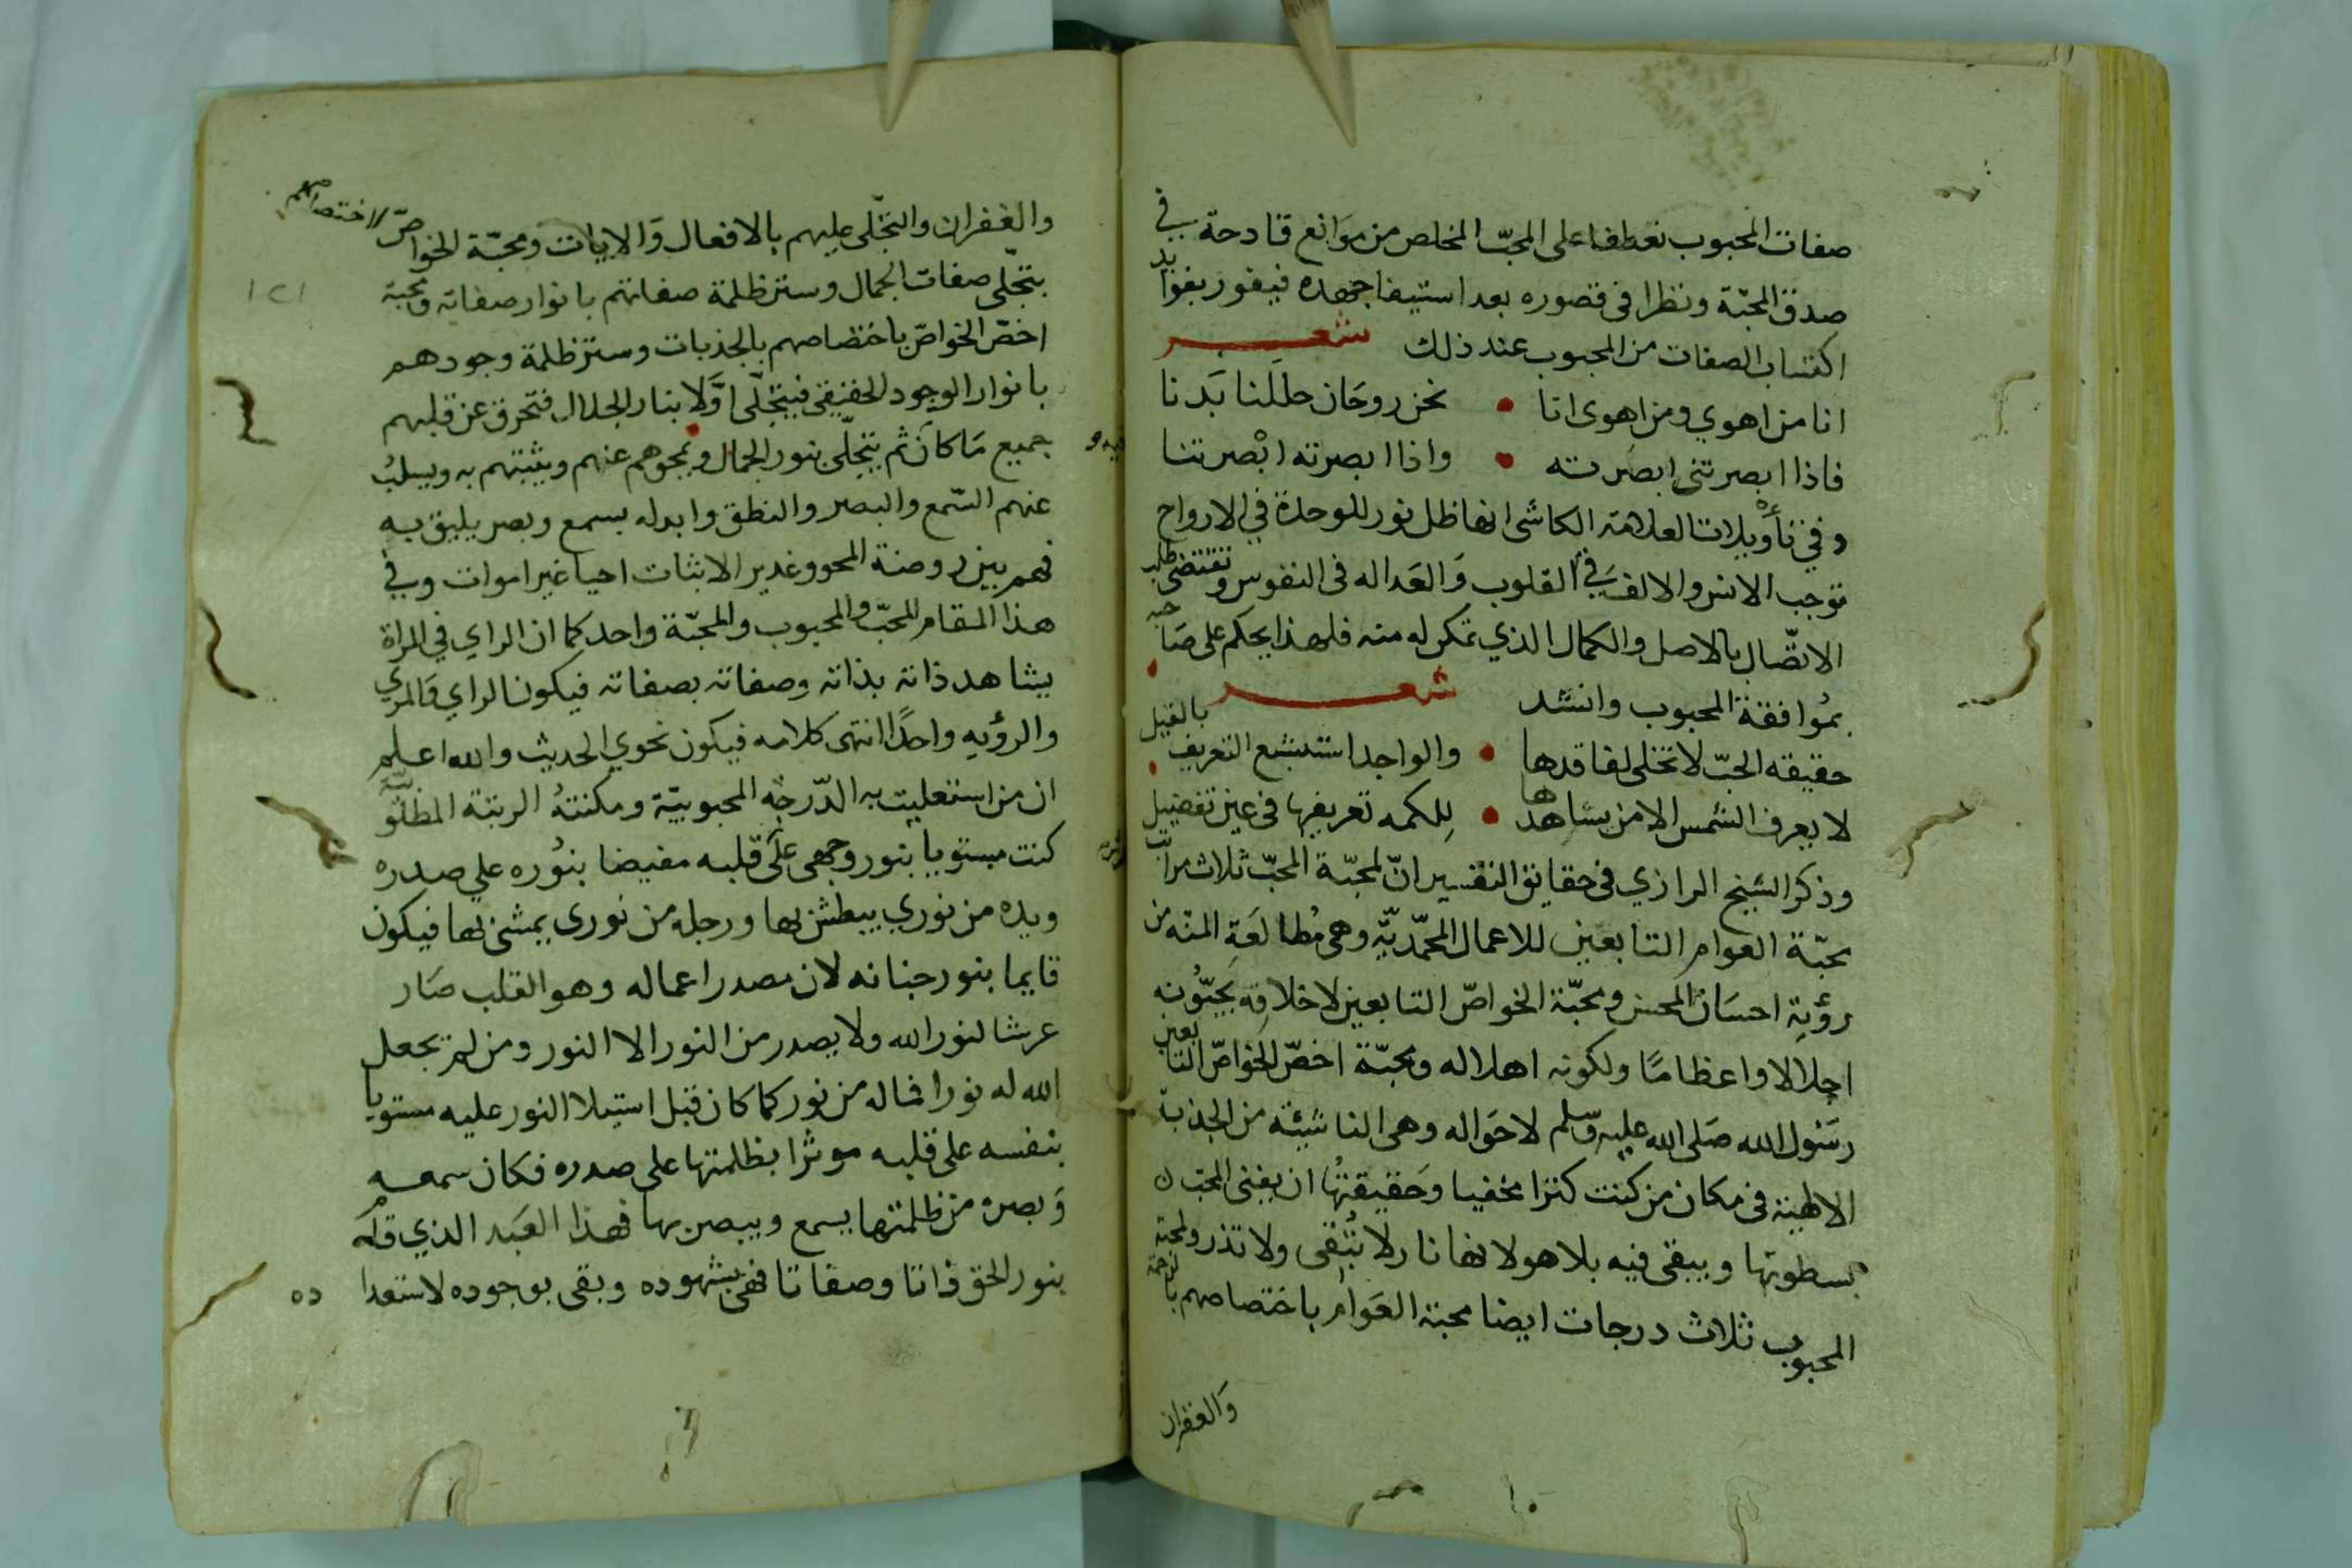 صفات المحبوب تعطفا على المحبّ المخلص من موانع قادحة في
صدق المحبّة ونظرا في قصوره بعد استيفا جهده فيفوز بفوايد
اكتساب الصفات من المحبوب عند ذلك شعر
انا من اهوي ومن اهوى انا • نحن روحان حللنا بَدنا
فاذا ابصرتني ابصرته • واذا ابصرته ابْصرتنا
وفي تأويلات العلامة الكاشى انها ظل نور للوحدة في الارواح
توجب الانس والالف في القلوب وَالعَداله في النفوس وتقتضي طلب
الاتصّال بالاصل والكمال الذي تمكن له منه فلهذا يحكم على صَاحبه
بمُوافقة المحبوب وانشد شعر
حقيقه الحبّ لا تخلى لفاقدها • والواجد استبشع التعريف بالقيل
لا يعرف الشمس الا من يشاهدها • بِلكمه تعريفها في عين تفضيل
وذكر الشيخ الرازي في حقايق التفسير انّ لمحبّة المحبّ ثلاث مراتب
محبّة العوام التابعين للاعمال المحمّديّه وهي مُطالعَة المنّه من
رؤية احسَان المحسن ومحبّة الخواصّ التابعين لاخلاقه يحبّونه
اجلالا واعظامًا ولكونه اهلا له ومحبّة اخصّ الخواصّ التابعين
رسَول الله صَلى الله عليه وسلم لاحَواله وهي الناشئة من الجذبة
الالهية في مكان من كنت كنزا مخفيا وحَقيقتُها ان يفنى المحب
بسطوتها ويبقى فيه بلا هو لانها نار لا تُبقى ولا تذر ولمحبة
المحبوب ثلاث درجات ايضا محبة العَوام باختصاصهم بالرحمة
وَالغفران
والغفران والتجّلى عليهم بالافعال وَالايات ومحبّة الخواصّ لاختصاصهم
بتجّلى صفات الجمال وستر ظلمة صفاتهم بانوار صفاته ومحبة
١٢١
اخصّ الخواصّ باختصاصهم بالجذبات وستر ظلمة وجودهم
بانوار الوجود الحقيقى فيتجّلى اوَّلا بنار الجلال فتحرق عن قلبهم
جميع مَا كان ثم يتجلّى بنور الجمال ويمحوهم عنهم ويثبتهم به ويسلبُ
عنهم السّمع والبصر والنطق وابدله بسمع وبصر يليق به
فهم بين روضة المحو وغدير الاثبات احيا غير اموات وفي
هذا المقام المحبّ والمحبوب والمحبّة واحد كما ان الراي في المراة
يشاهد ذاته بذاته وصفاته بصفاته فيكون الراي وَالمري
والرؤيه واحدًا انتهى كلامه فيكون نحوي الحديث والله اعلم
ان من استعليت به الدّرجه المحبوبيّة ومكنتهُ الرتبة المطلوبيّة
كنت مستويا بنور وجهى علَى قلبه مفيضا بنُوره علي صدره
ويده من نوري يبطش بها ورجله من نورى يمشى بها فيكون
قايما بنور جنانه لان مصدر اعماله وهو القلب صَار
عرشا لنور الله ولا يصدر من النور الا النور ومن لم يجعل
الله له نورا فماله من نور كما كان قبل استيلا النور عليه مستويا
بنفسه على قلبه موثرا بظلمتها على صدره فكان سمعه
وَبصره من ظلمتها يسمع ويبصر بها فهذا العَبد الذي قام
بنور الحق ذاتا وصفاتا فنى بشهوده وبقى بوجوده لاستعدا ده